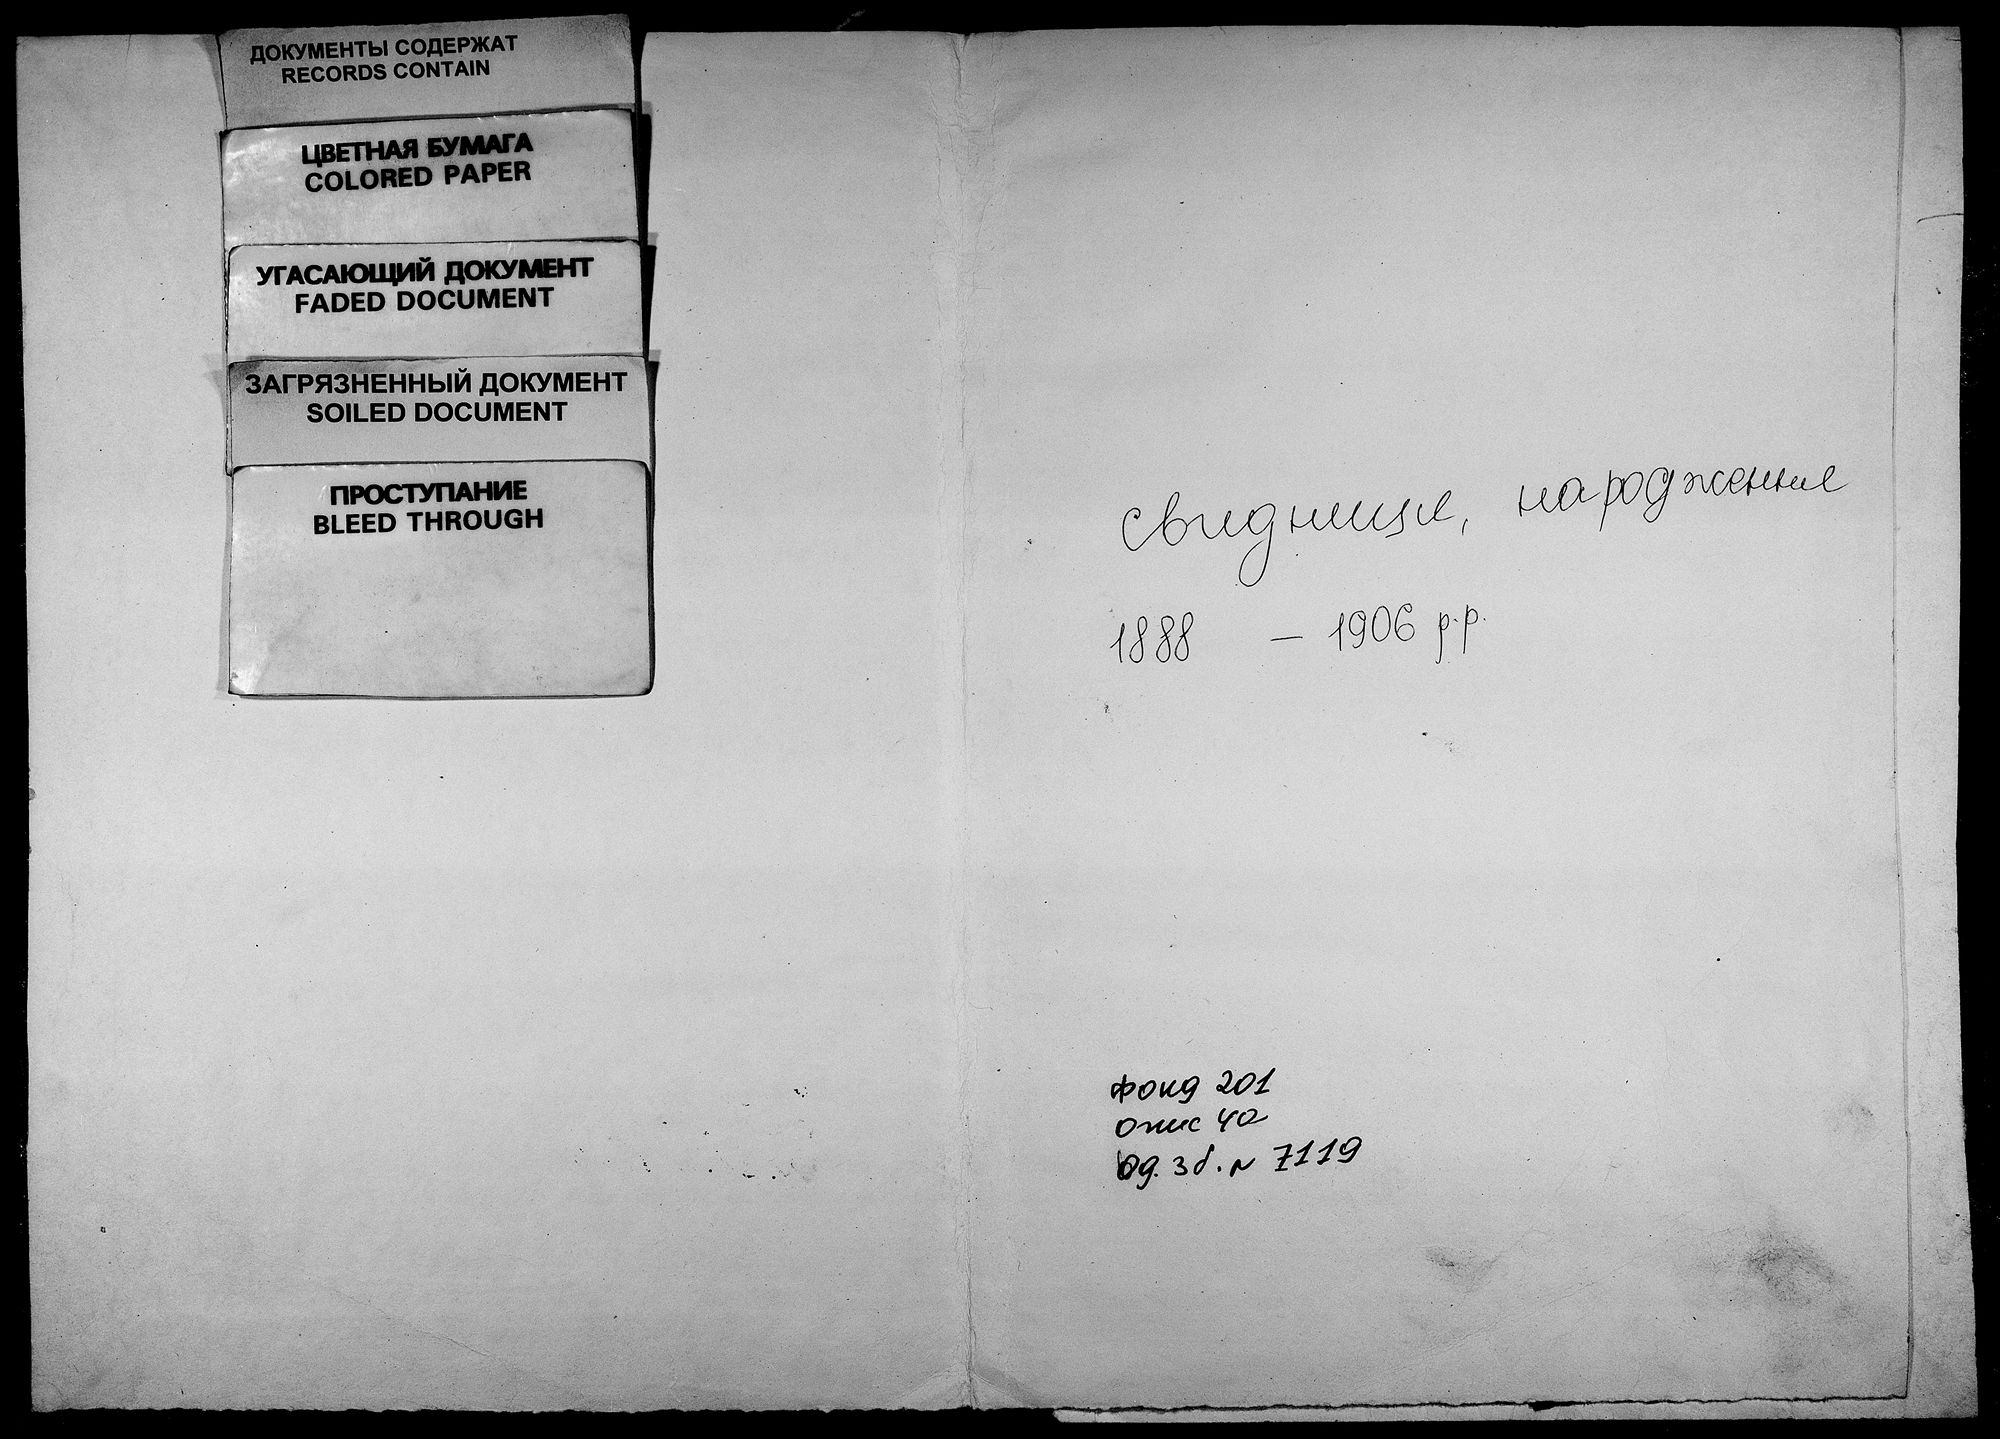 ДОКУМЕНТЫ СОДЕРЖАТ
RECORDS CONTAIN
ЦВЕТНАЯ БУМАГА
COLORED PAPER
УГАСАЮЩИЙ ДОКУМЕНТ
FADED DOCUMENT
ЗАГРЯЗНЕННЫЙ ДОКУМЕНТ
SOILED DOCUMENT
ПРОСТУПАНИЕ
BLEED THROUGH
Свидниця, народження
1888 – 1906 р.р.
Фонд 201
опис 4а
Од. зб. № 7119